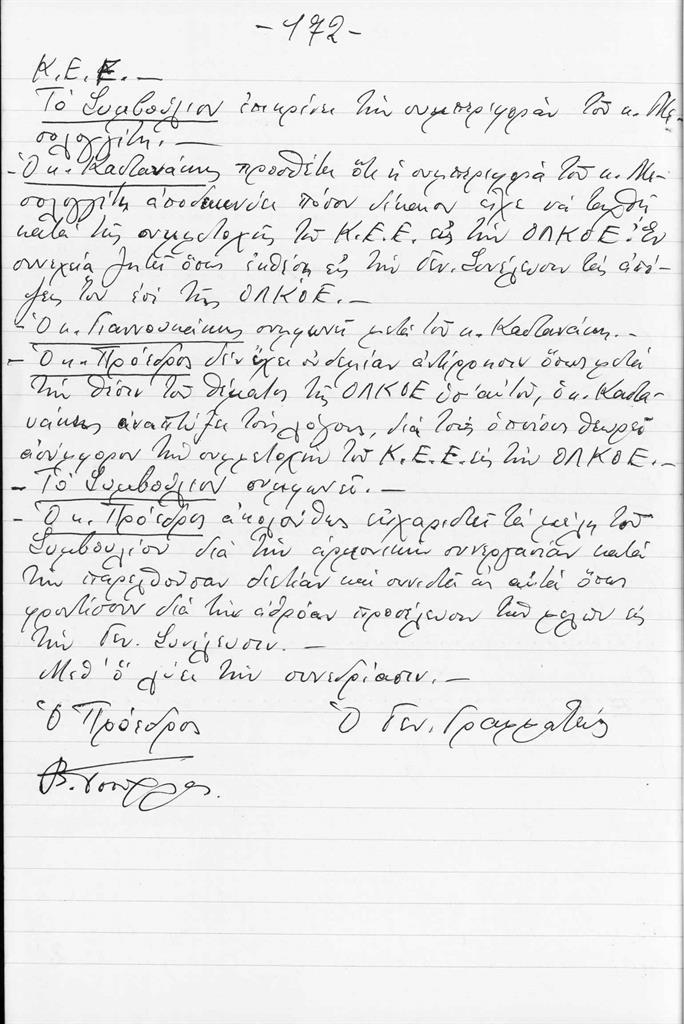 -172-
Κ.Ε.Ε.—
Τό Συμβούλιον ἐπικρίνει τήν συμπεριφοράν τοῦ κ. Με-
σολογγίτη.—
-Ὁ κ. Καστανάκης προσθέτει ὅτι ἡ συμπεριφορά τοῦ κ. Με-
σολογγίτη ἀποδεικνύει πόσον δίκαιον εἶχε νά ταχθῇ
κατά τῆς συμμετοχῆς τῆς Κ.Ε.Ε. εἰς τήν ΟΛΚΟΕ. Ἐν
συνεχείᾳ ζητεῖ ὅπως ἐκθέσῃ εἰς τήν Γεν. Συνέλευσιν τάς ἀπό-
ψεις του ἐπί τῆς ΟΛΚΟΕ.—
-Ὁ κ. Γιαννουκάκης συμφωνεῖ μετά τοῦ κ. Καστανάκη.—
-Ὁ κ. Πρόεδρος δέν ἔχει οὐδεμίαν ἀντίρρησιν ὅπως μετά
τήν θέσιν τοῦ θέματος τῆς ΟΛΚΟΕ ὑπ' αὐτοῦ, ὁ κ. Καστα-
νάκης ἀναπτύξει τούς λόγους, διά τούς ὁποίους θεωρεῖ
ἀσύμφορον τήν συμμετοχήν τοῦ Κ.Ε.Ε. εἰς τήν ΟΛΚΟΕ.—
-Τό Συμβούλιον συμφωνεῖ.—
-Ὁ κ. Πρόεδρος ἀκολούθως εὐχαριστεῖ τά μέλη τοῦ
Συμβουλίου διά τήν ἁρμονικήν συνεργασίαν κατά
τήν παρελθοῦσαν διετίαν καί συνιστᾶ εἰς αὐτά ὅπως
φροντίσουν διά τήν ἀθρόαν προσέλευσιν τῶν μελῶν εἰς
τήν Γεν. Συνέλευσιν.—
Μεθ' ὅ λύει τήν συνεδρίασιν.—
Ὁ Πρόεδρος Ὁ Γεν. Γραμματεύς